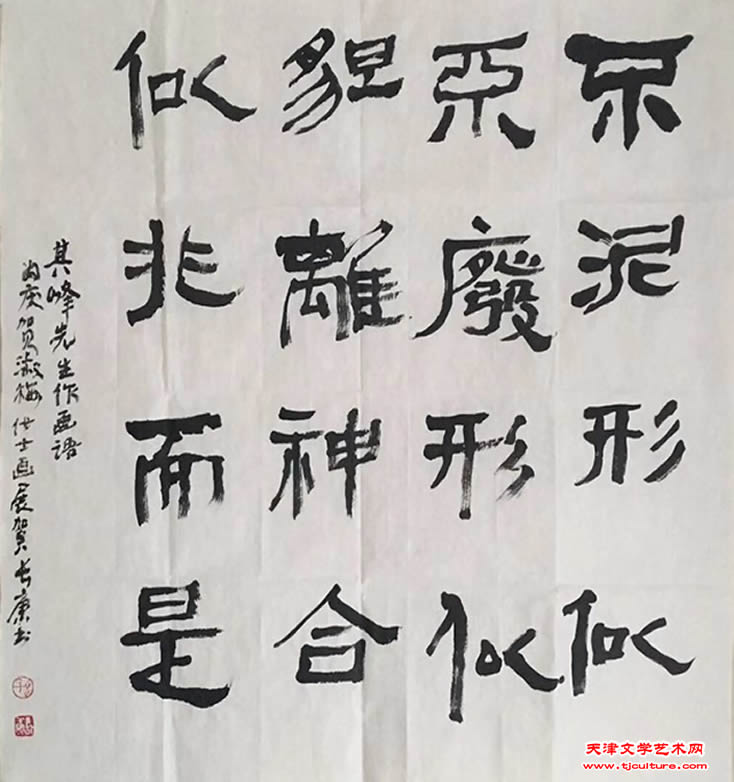 不泥形似
不廢形似
貌離神合
似非而是
其峰先生作画语
为庆贺淑梅女士画展贺长康书
天津文学艺术网
www.tjculture.com